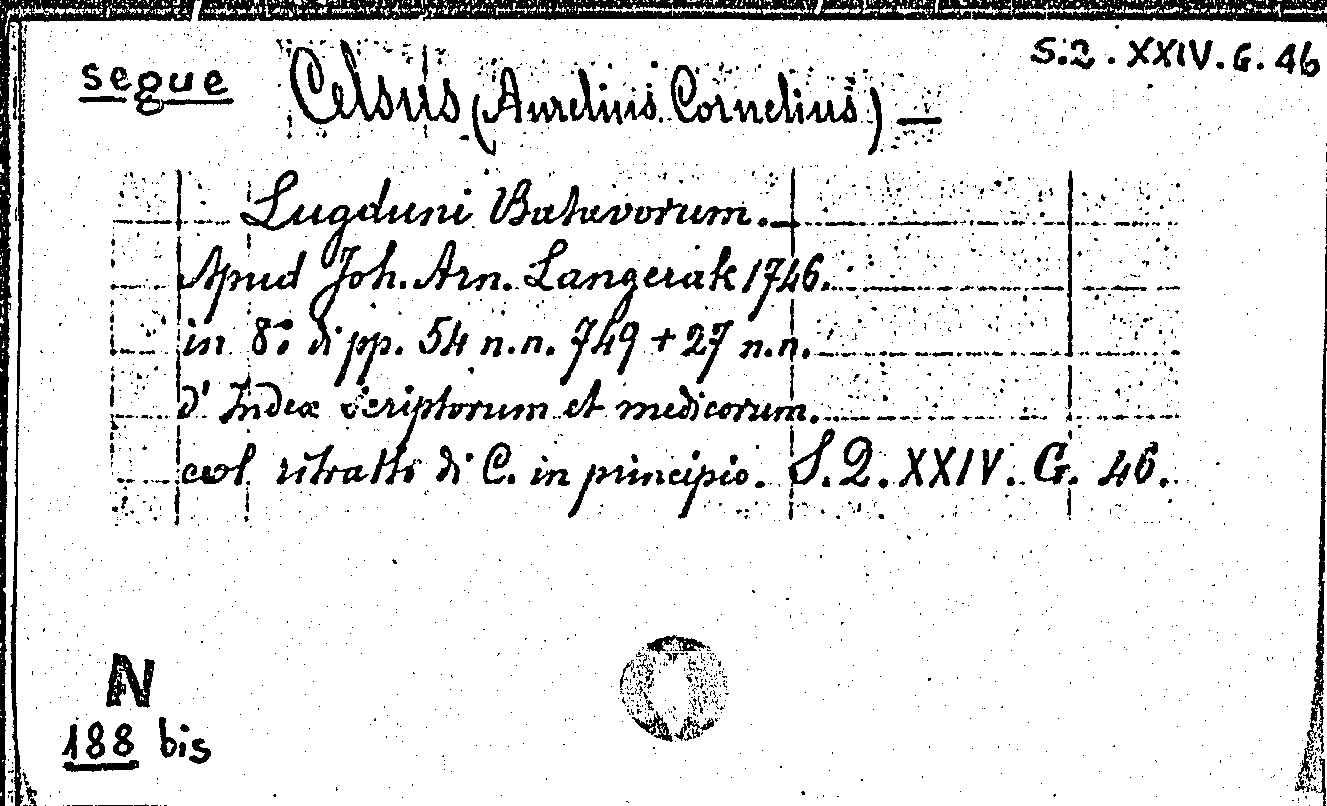 S.2. XXIV. G. 46
segue Celsus (Aurelius Cornelius) —
Lugduni Batavorum. —
Apud Joh. Arn. Langerak 1746.
in 8.° di pp. 54 n.n. 749 + 27 n.n.
d' Index scriptorum et medicorum.
col ritratto di C. in principio. S.2. XXIV. G. 46.
N
188 bis